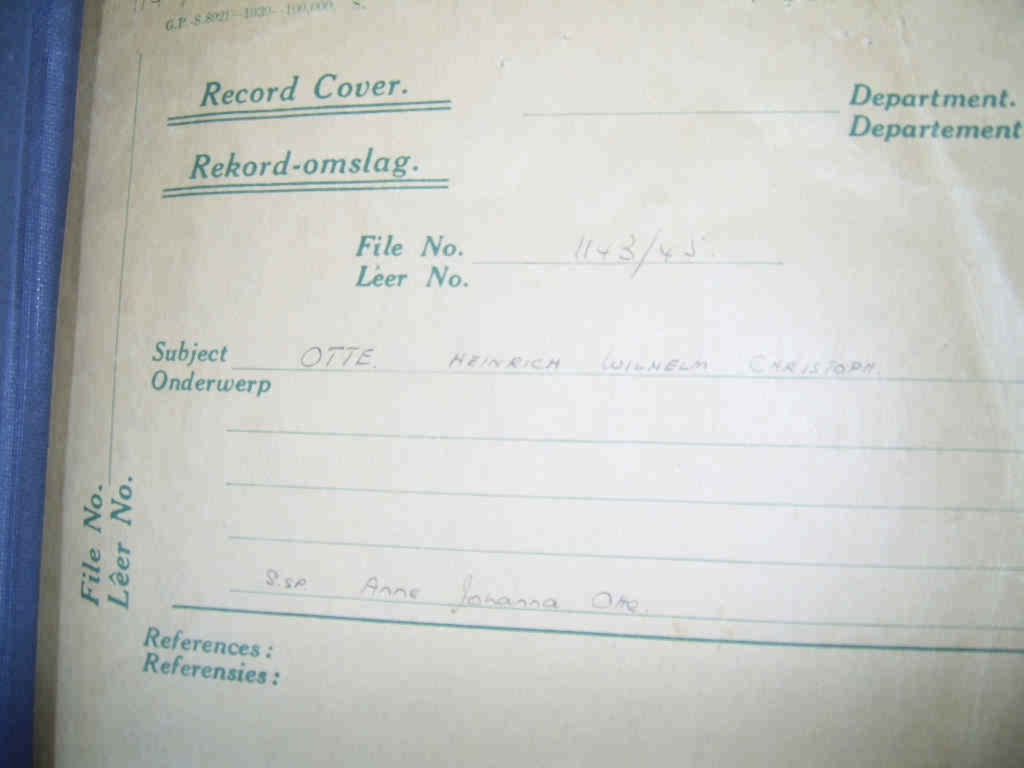 G.P.-S.8021--1939--100,000. S.
Record Cover.
Department.
Departement
Rekord-omslag.
File No. 1143/45.
Lêer No.
Subject OTTE. HEINRICH WILHELM CHRISTOPH.
Onderwerp
S.SP. Anne Johanna Otte.
File No.
Lêer No.
References:
Referensies: